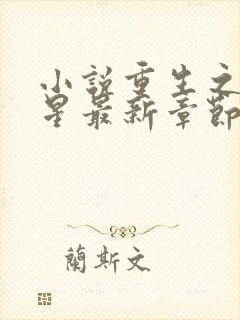 小說重生之
星最新章節
蘭斯文